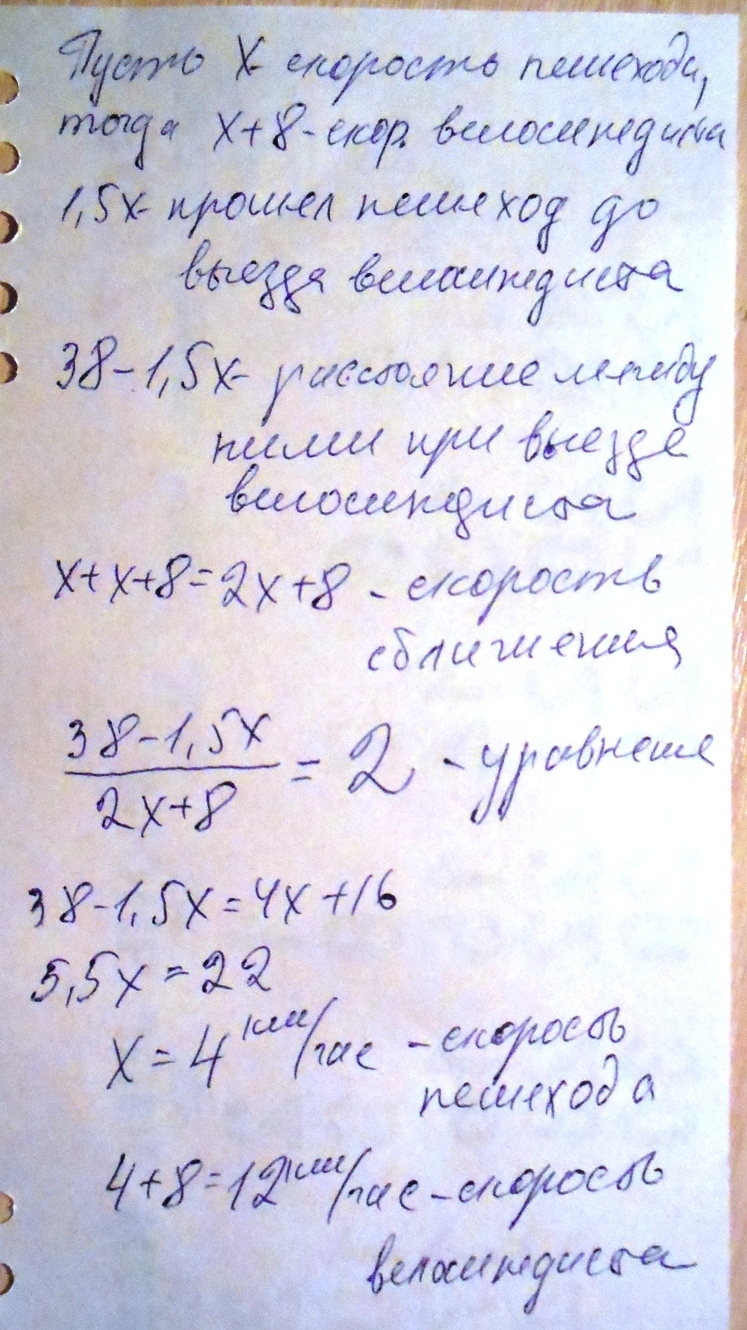 Пусть x - скорость пешехода,
тогда x+8 - скор. велосипедиста
1,5x - прошел пешеход до
выезда велосипедиста
38-1,5x - расстояние между
ними при выезде
велосипедиста
x+x+8=2x+8 - скорость
сближения
38-1,5x
/ 2x+8 = 2 - уравнение
38-1,5x=4x+16
5,5x=22
x=4 км/час - скорость
пешехода
4+8=12 км/час - скорость
велосипедиста